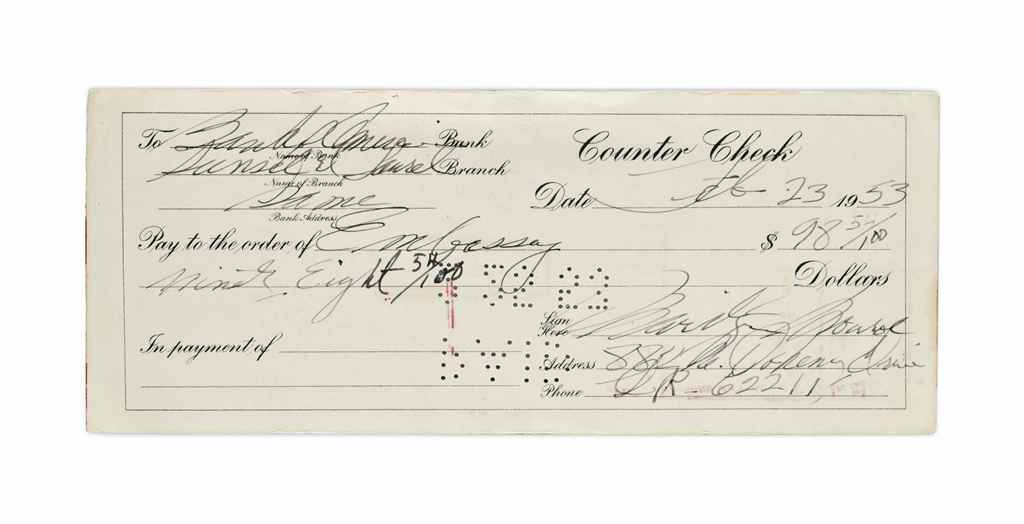 To Bank of America Bank
Name of Bank
Sunset & Laurel Branch
Name of Branch
Same
Bank Address
Counter Check
Date Feb 23 1953
Pay to the order of Embassy $ 98 54/100
Ninety Eight 54/100 Dollars
Sign Here Marilyn Monroe
In payment of
Address 882 Doheny Drive
Phone CR-62211